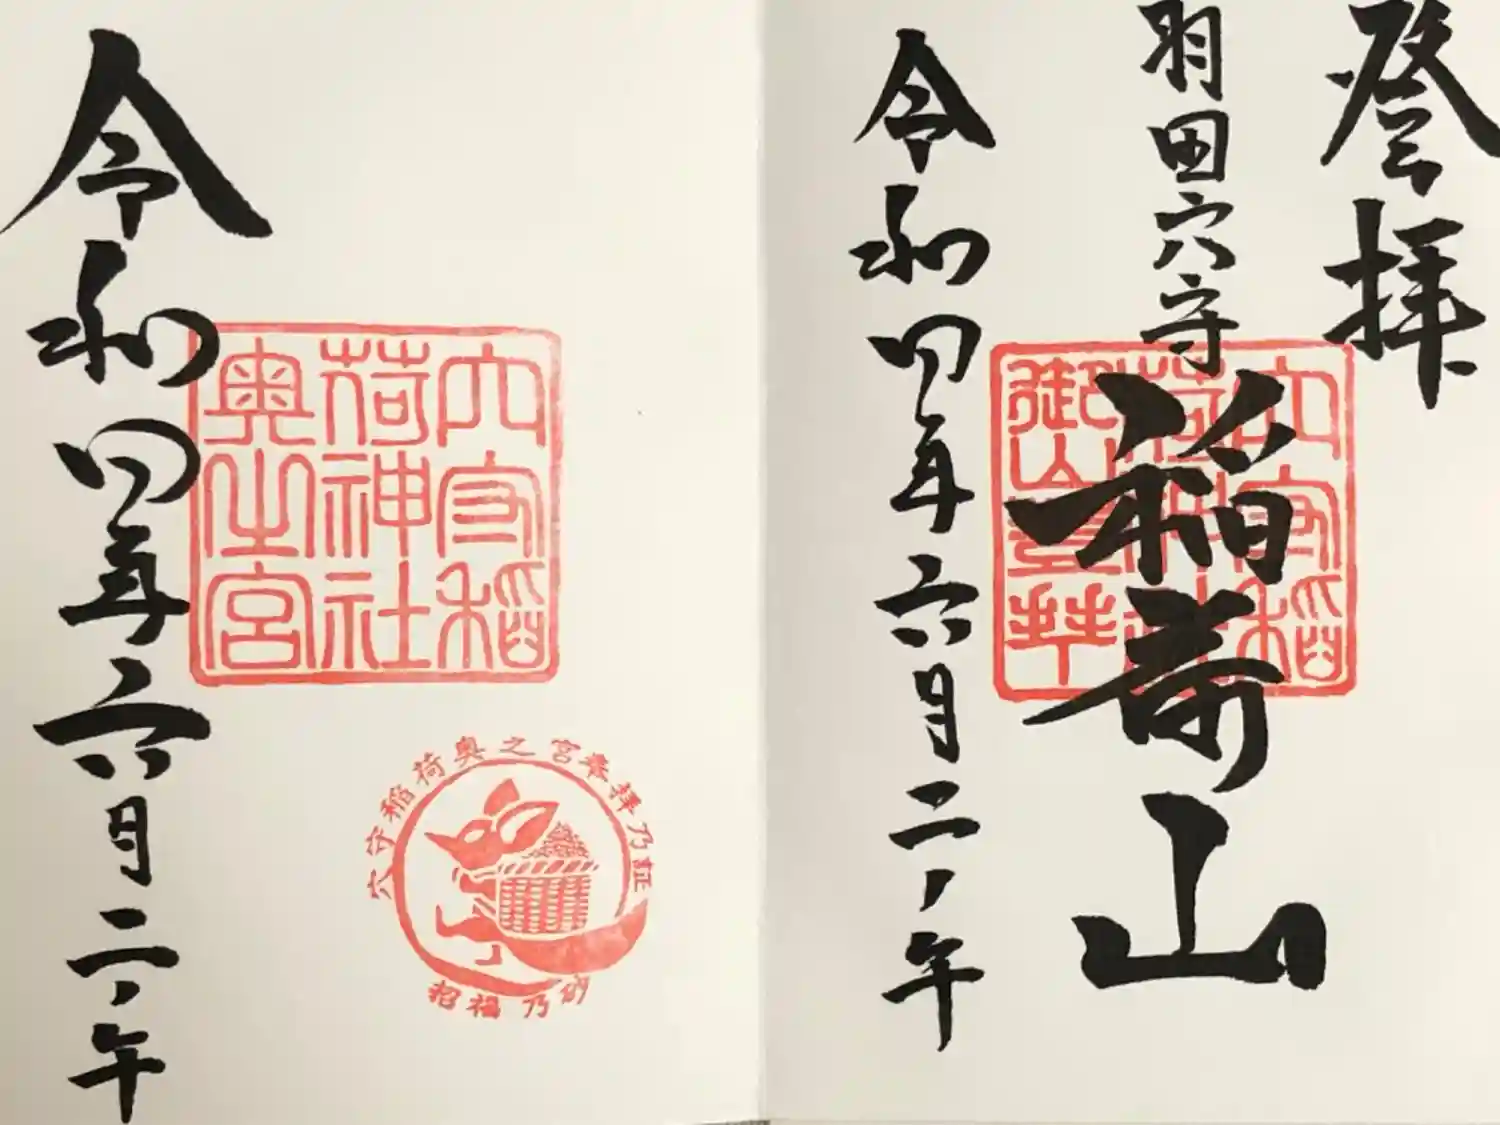 登拝
羽田穴守
稲荷山
穴守稲
荷神社
御山登拝
令和四年六月二ノ午
穴守稲
荷神社
奥之宮
穴守稲荷奥之宮奉拝乃証
招福乃砂
令和四年六月二ノ午